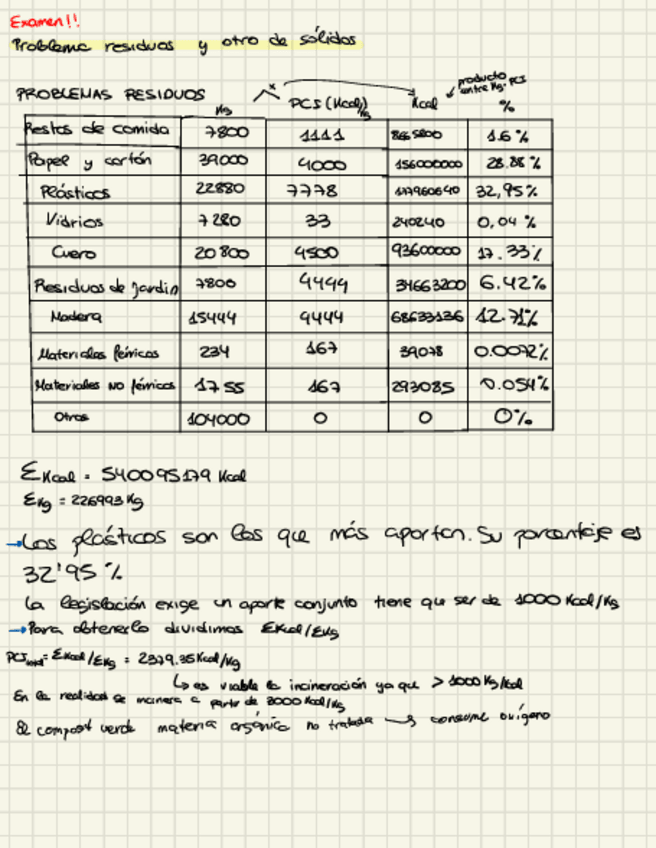 Examen!!
Problema residuos y otro de sólidos
PROBLEMAS RESIDUOS
Kg PCS (Kcal/Kg) Kcal producto entre Kg·PCS %
Restos de comida 7800 1111 8665800 1.6 %
Papel y cartón 39000 4000 156000000 28.88 %
Plásticos 22880 7778 177960640 32,95 %
Vidrios 7280 33 240240 0,04 %
Cuero 20800 4500 93600000 17.33 %
Residuos de jardin 7800 4444 34663200 6.42 %
Madera 15444 4444 68633136 12.71 %
Materiales férricos 234 167 39078 0.0072 %
Materiales no férricos 1755 167 293085 0.054 %
Otros 104000 0 0 0 %
ΣKcal = 540095179 Kcal
ΣKg = 226993 Kg
→ Los plásticos son los que más aportan. Su porcentaje es
32'95 %
La legislación exige un aporte conjunto tiene que ser de 1000 Kcal/Kg
→ Para obtenerlo dividimos ΣKcal/ΣKg
PCStotal = ΣKcal/ΣKg = 2379.35 Kcal/Kg
↳ es viable la incineración ya que > 1000 Kg/Kcal
En la realidad se incinera a partir de 3000 Kcal/Kg
El compost verde materia orgánica no tratada → consume oxígeno